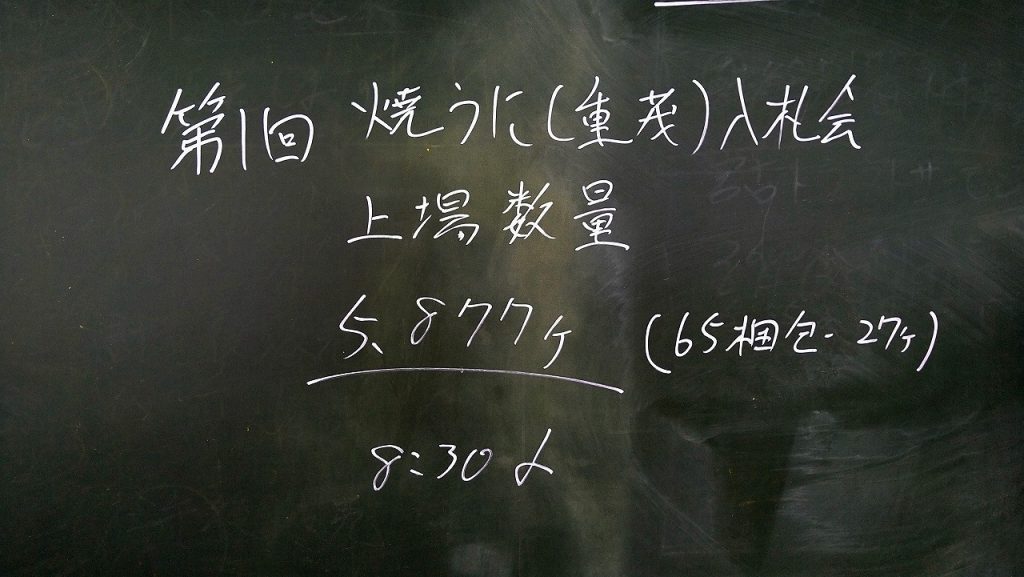 第1回 焼うに(重茂)入札会
上場数量
5,877ヶ (65梱包・27ヶ)
8:30〆